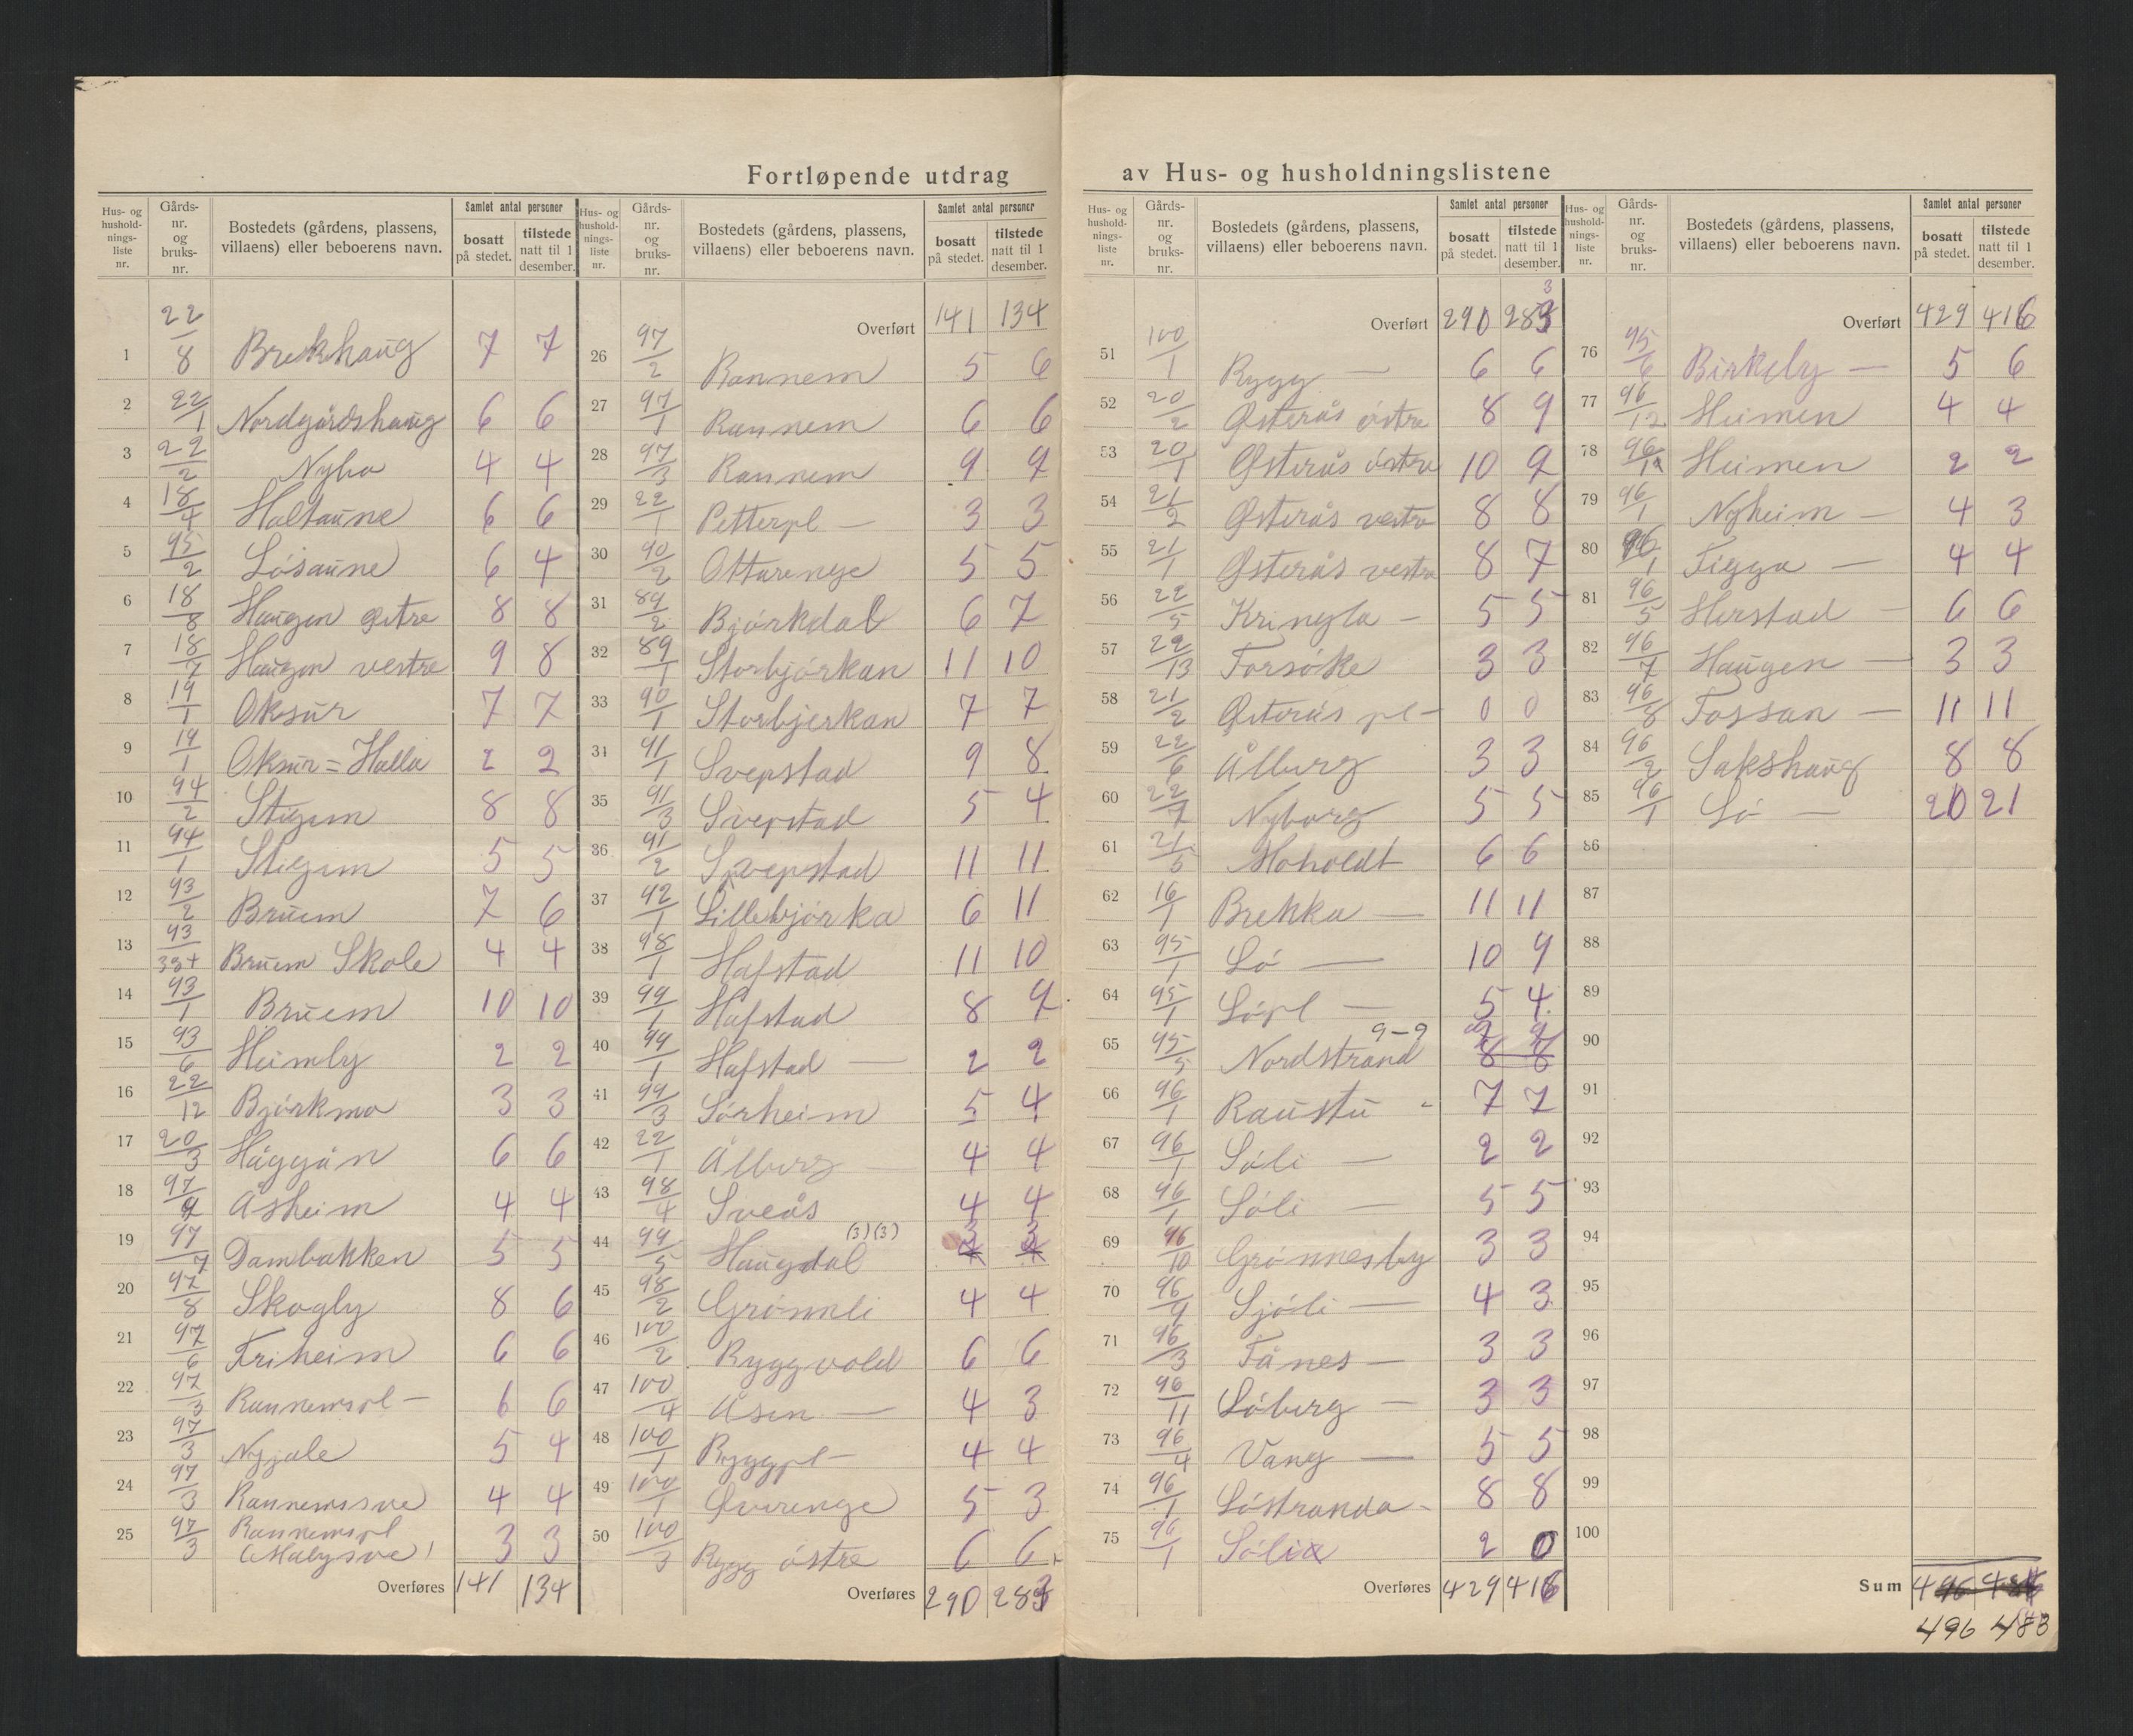 Fortløpende utdrag av Hus- og husholdningslistene
Hus- og hushold- nings- liste nr. | Gårds- nr. og bruks- nr. | Bostedets (gårdens, plassens, villaens) eller beboerens navn. | Samlet antal personer | bosatt på stedet. | tilstede natt til 1 desember.
1 22/8 Brekkhaug 7 7
2 22/1 Nordgårdshaug 6 6
3 22/2 Nybo 4 4
4 18/4 Haltaune 6 6
5 95/2 Løsaune 6 4
6 18/8 Haugen østre 8 8
7 18/7 Haugen vestre 9 8
8 19/1 Oksur 7 7
9 19/1 Oksur = Halla 2 2
10 94/2 Stigum 8 8
11 94/1 Stigum 5 5
12 93/2 Bruem 7 6
13 93/3a+ Bruem Skole 4 4
14 93/1 Bruem 10 10
15 93/6 Heimly 2 2
16 22/12 Bjørkmo 3 3
17 20/3 Häggån 6 6
18 97/9 Åsheim 4 4
19 97/7 Dambakken 5 5
20 97/8 Skogly 8 6
21 97/6 Friheim 6 6
22 97/3 Rannemspl - 6 6
23 97/3 Nyjale 5 4
24 97/3 Rannemssve 4 4
25 97/3 Rannemspl (Malysve) 3 3
Overføres 141 134
Hus- og hushold- nings- liste nr. | Gårds- nr. og bruks- nr. | Bostedets (gårdens, plassens, villaens) eller beboerens navn. | Samlet antal personer | bosatt på stedet. | tilstede natt til 1 desember.
Overført 141 134
26 97/2 Rannem 5 6
27 97/1 Rannem 6 6
28 97/3 Rannem 9 9
29 22/1 Petterpl - 3 3
30 90/2 Ottarenge 5 5
31 89/2 Bjørkdal 6 7
32 89/1 Storbjørkan 11 10
33 90/1 Storbjerkan 7 7
34 91/1 Svepstad 9 8
35 91/3 Svepstad 5 4
36 91/2 Svepstad 11 11
37 92/1 Lillebjørka 6 11
38 98/1 Hafstad 11 10
39 99/1 Hafstad 8 9
40 99/1 Hafstad - 2 2
41 99/3 Sørheim 5 4
42 22/1 Ålburg 4 4
43 98/4 Sveås 4 4
44 99/5 Haugdal (3)(3) 3 3
45 98/2 Grønnli 4 4
46 100/2 Ryggvold 6 6
47 100/4 Åsen - 4 3
48 100/1 Ryggpl - 4 4
49 100/1 Øverenge 5 3
50 100/3 Rygg østre 6 6
Overføres 290 283
Hus- og hushold- nings- liste nr. | Gårds- nr. og bruks- nr. | Bostedets (gårdens, plassens, villaens) eller beboerens navn. | Samlet antal personer | bosatt på stedet. | tilstede natt til 1 desember.
Overført 290 283
51 100/1 Rygg - 6 6
52 20/2 Østerås østre 8 9
53 20/1 Østerås østre 10 9
54 21/2 Østerås vestre 8 8
55 21/1 Østerås vestre 8 7
56 22/5 Kringla - 5 5
57 22/13 Forsøke 3 3
58 21/2 Østerås pl - 0 0
59 22/6 Ålburg 3 3
60 22/7 Nyborg 5 5
61 21/5 Moholdt 6 6
62 16/1 Brekka - 11 11
63 95/1 Lø - 10 9
64 95/1 Løpl - 5 4
65 95/5 Nordstrand 9-9 8 8
66 96/1 Raustu - 7 7
67 96/1 Søli - 2 2
68 96/1 Søli - 5 5
69 96/10 Grønnesby 3 3
70 96/9 Sjøli - 4 3
71 96/3 Fånes - 3 3
72 96/11 Løberg - 3 3
73 96/4 Vang - 5 5
74 96/1 Løstranda - 8 8
75 96/1 Sølia 2 0
Overføres 429 416
Hus- og hushold- nings- liste nr. | Gårds- nr. og bruks- nr. | Bostedets (gårdens, plassens, villaens) eller beboerens navn. | Samlet antal personer | bosatt på stedet. | tilstede natt til 1 desember.
Overført 429 416
76 95/6 Birkely - 5 6
77 96/12 Heimen 4 4
78 96/12 Heimen 2 2
79 96/1 Nyheim - 4 3
80 96/1 Figga - 4 4
81 96/5 Herstad - 6 6
82 96/7 Haugen - 3 3
83 96/8 Fossan - 11 11
84 96/2 Sakshaug 8 8
85 96/1 Lø - 20 21
86
87
88
89
90
91
92
93
94
95
96
97
98
99
100
Sum 496
496 483